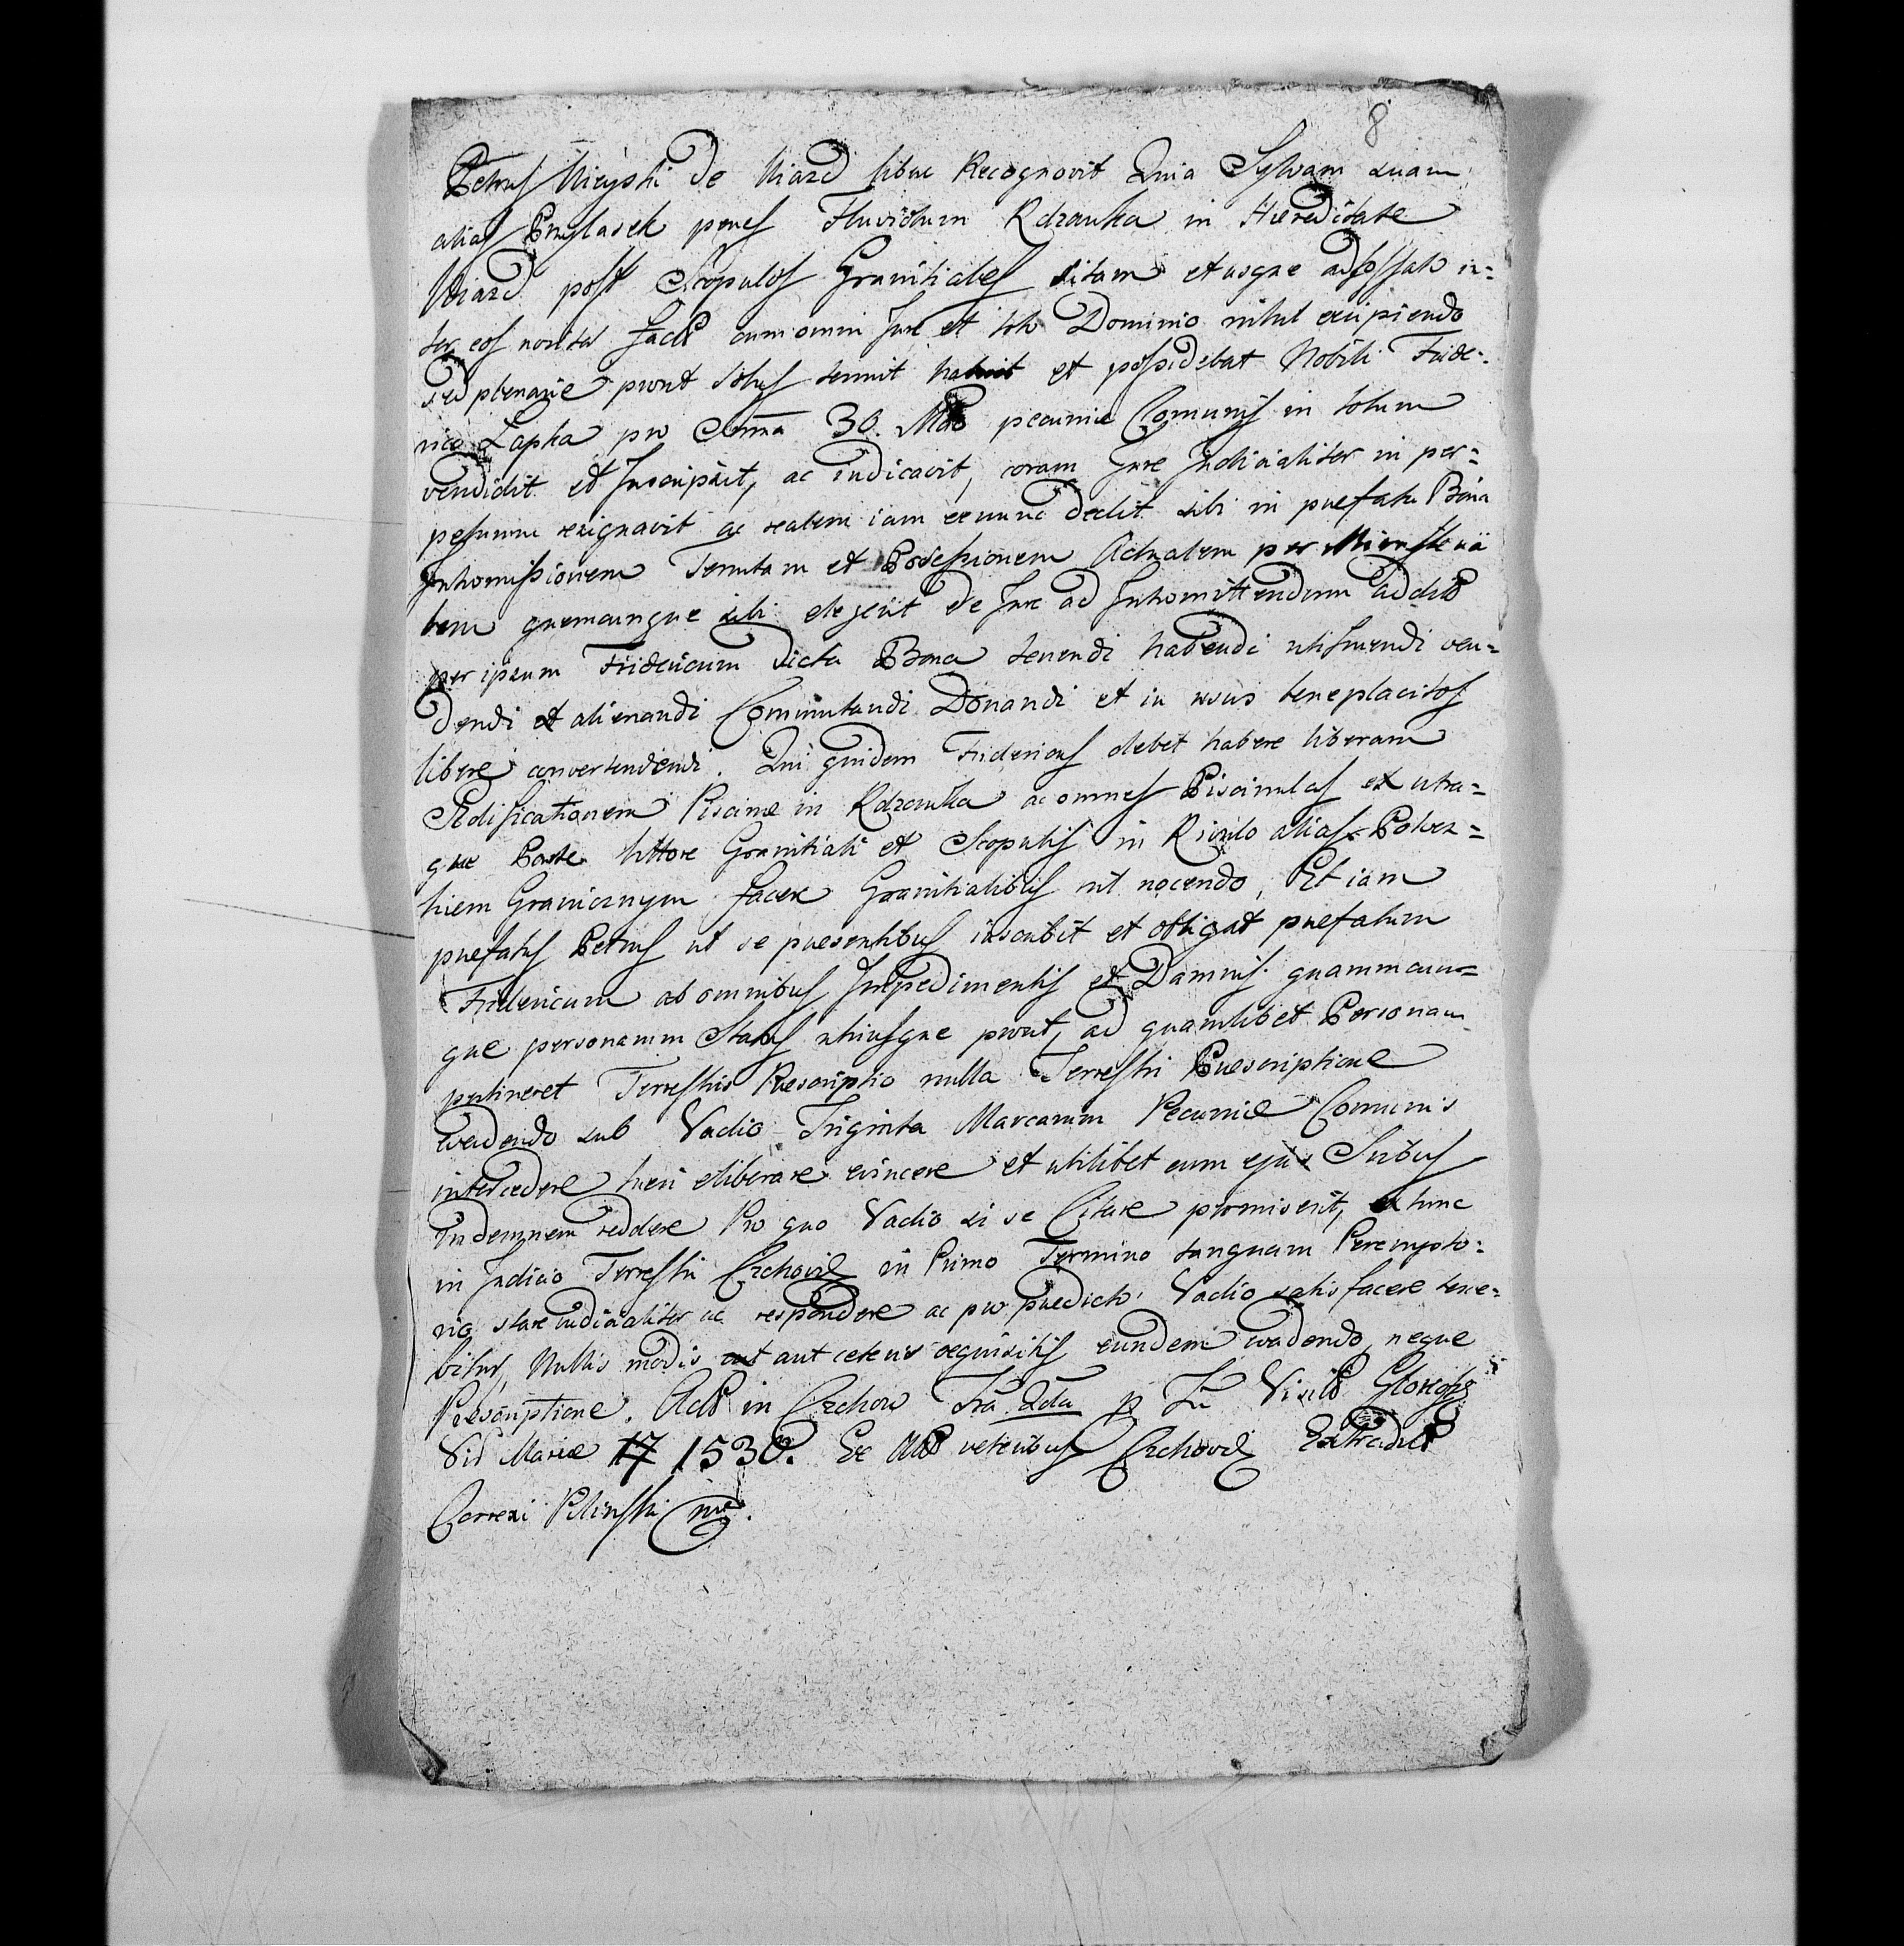 8
Petrus de Uiazd libere Recognovit Quia Sylvam suam
alias Przylasek penes Fluvidum Rdzauka in Hæreditate
Uiazd post Scopulos Granitiales sitam et usque ad fossato in=
ter eos noviter facta cum omni Jure et toto Dominio nihil excipiendo
sed plenarie prout solus tenuit habuit et possidebat Nobili Fride=
rico Lapka pro Summa 30. pecuniæ Comunis in totum
vendidit et Inscripsit, ac indicavit, coram Jure Judicialiter in per=
petuum resignavit ac realem iam exnunc dedit sibi in præfata Bona
Intromissionem Tenutam et Possessionem Actualem per Ministeria
lem quemcunque sibi elegerit de Jure ad Intromittendum
per ipsum Fridericum dicta Bona tenendi habendi utifruendi ven=
dendi et alienandi Commutandi Donandi et in usus beneplacitos
libere convertendi. Qui quidem Fridericus debet habere liberam
Ædificationem Piscinæ in Rdzauka ac omnes Piscinulas ex utra=
que Parte littore Granitiali et Scopulis in Rivulo alias
Granicznym facere Granitialibus nil nocendo, Et iam
præfatus Petrus ut se præsentibus inscribit et obligat præfatum
Fridericum ab omnibus Impedimentis et Damnis quarumcun=
que personarum Status utriusque prout, ad quamlibet Personam
pertineret Terrestris Præscriptio nulla Terrestri Præscriptione
evadendo sub Vadio Triginta Marcarum Pecuniæ Comunis
intercedere tueri eliberare evincere et utilibet eum
Indemnem reddere Pro quo Vadio si se Citare promiserit, extunc
in Judicio Terrestri in Primo Termino tanquam Perempto=
rio stare iudicialiter ac respondere ac pro prædicto Vadio satisfacere tene=
bitur, Nullis modis aut ceteris requisitis eundem evadendo, neque
Præscriptione. in
Vis Mariæ 1530. Ex veteribus
Correxi mp.